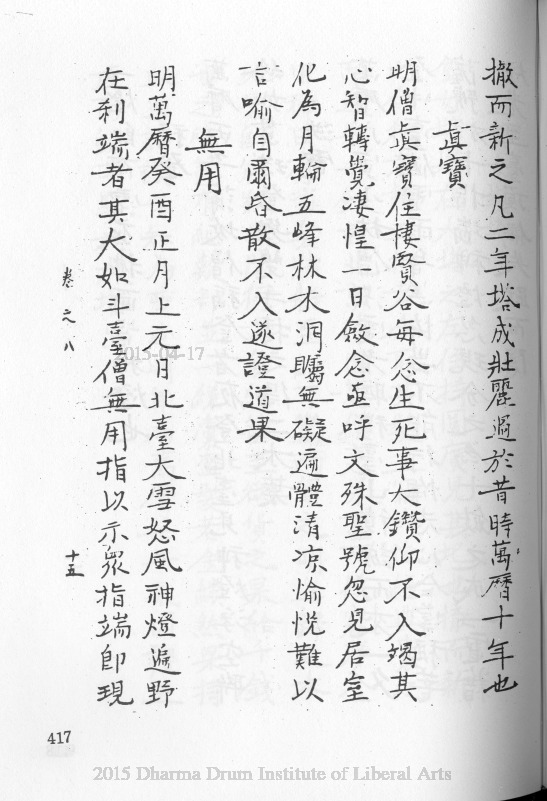 撤而新之凡二年塔成壯麗過於昔時萬曆十年也
真寶
明僧真寶住棲賢谷每念生死事大鑽仰不入竭其
心智轉覺淒惶一日斂念亟呼文殊聖號忽見居室
化為月輪五峰林木洞矚無礙遍體清凉愉悦難以
言喻自爾昏散不入遂證道果
無用
明萬曆癸酉正月上元日北臺大雪怒風神燈遍野
在刹端者其大如斗臺僧無用指以示眾指端即現
卷之八
十五
417
2015-04-17
2015 Dharma Drum Institute of Liberal Arts